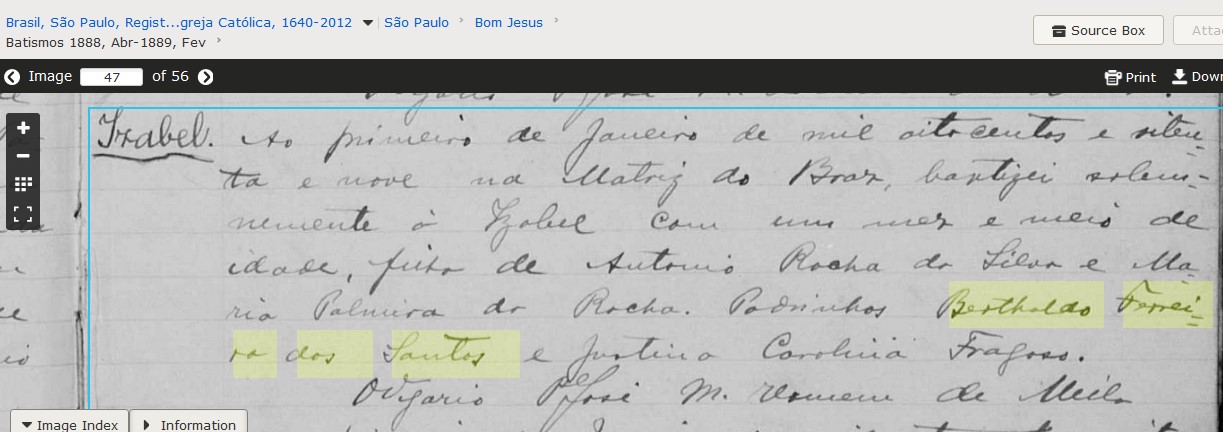 Brasil, São Paulo, Regist...greja Católica, 1640-2012 São Paulo Bom Jesus
Batismos 1888, Abr-1889, Fev
Source Box
Atta
Image 47 of 56
Print
Down
Izabel. Ao primeiro de Janeiro de mil oitocentos e oiten-
ta e nove na Matriz do Braz, baptizei solem-
nemente á Izabel com um mez e meio de
idade, filha de Antonio Rocha da Silva e Ma-
ria Palmira da Rocha. Padrinhos Bertholdo Ferrei-
ra dos Santos e Justina Carolina Fragoso.
O Vigario Pe José M. Homem de Mello
Image Index
Information